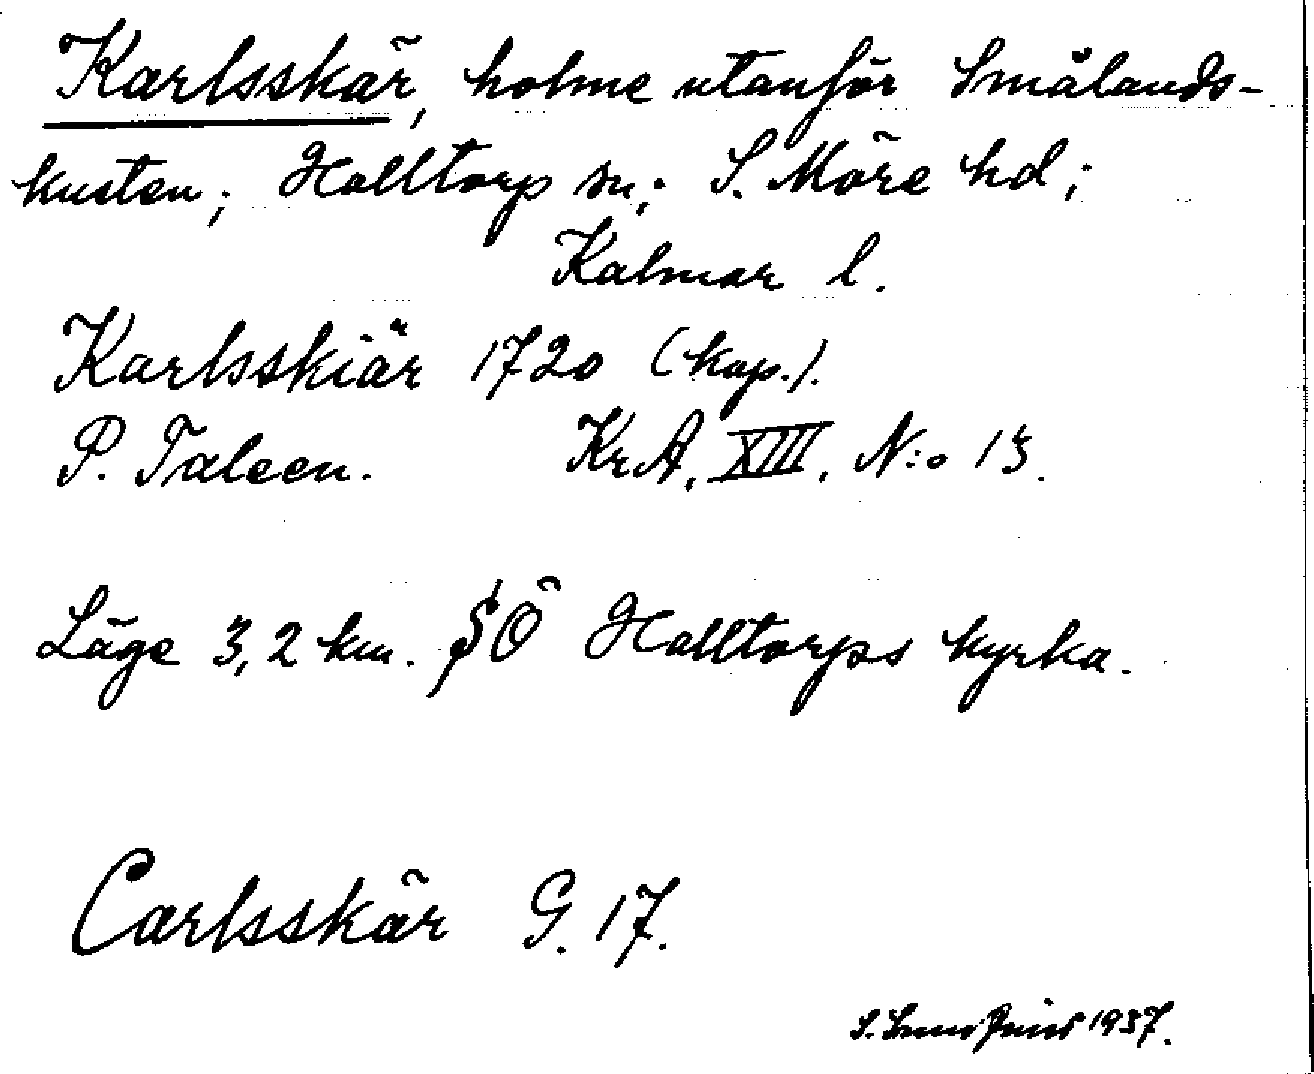 Karlsskär, holme utanför Smålands-
kusten; Halltorp sn; S. Möre hd;
Kalmar l.
Karlsskiär 1720 (kop.).
P. Taleen. KrA, XIII, N:o 13.
Läge 3,2 km. SÖ Halltorps kyrka.
Carlsskär G. 17.
S. 1937.